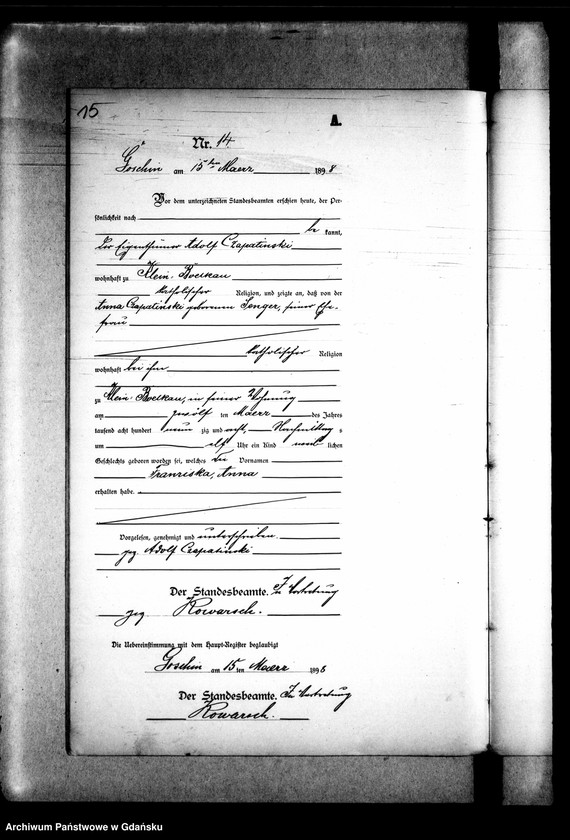 15
A.
Nr. 14.
Goschin am 15ten Maerz 1898
Vor dem unterzeichneten Standesbeamten erschien heute, der Per-
sönlichkeit nach
be kannt,
der Eigenthümer Adolf Czapatinski
wohnhaft zu Klein-Boelkau
katholischer Religion, und zeigte an, daß von der
Anna Czapatinski geborenen Senger, seiner Ehe-
frau
katholischer Religion
wohnhaft bei ihm
zu Klein-Boelkau, in seiner Wohnung
am zwölf ten Maerz des Jahres
tausend acht hundert neun zig und acht, Nachmittag s
um elf Uhr ein Kind weib lichen
Geschlechts geboren worden sei, welches die Vornamen
Franziska, Anna
erhalten habe.
Vorgelesen, genehmigt und unterschrieben
gez. Adolf Czapatinski
Der Standesbeamte. In Vertretung
gez Kowarsch.
Die Uebereinstimmung mit dem Haupt-Register beglaubigt
Goschin am 15 ten Maerz 1898
Der Standesbeamte. In Vertretung
Kowarsch.
Archiwum Państwowe w Gdańsku